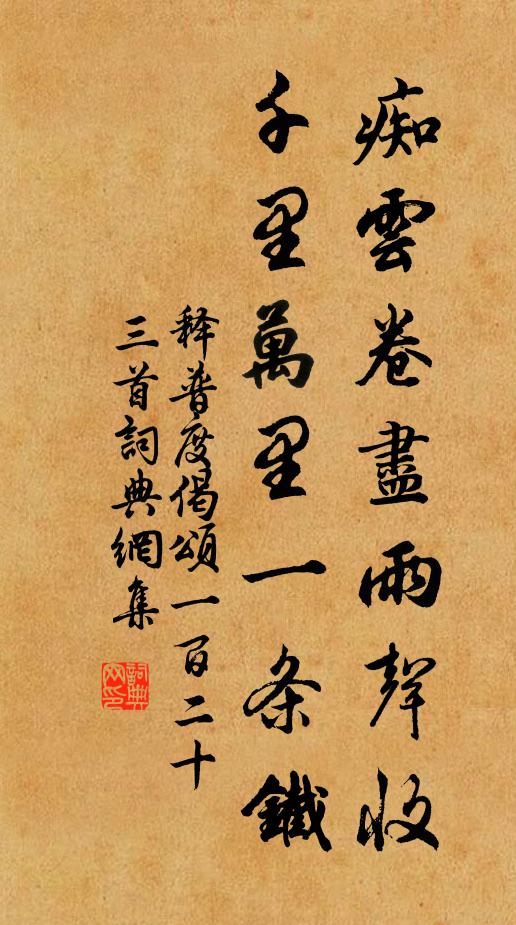 痴雲卷盡雨聲收
千里萬里一条鐵
释普度偈頌一百二十
三首詞典網集
詞典网印